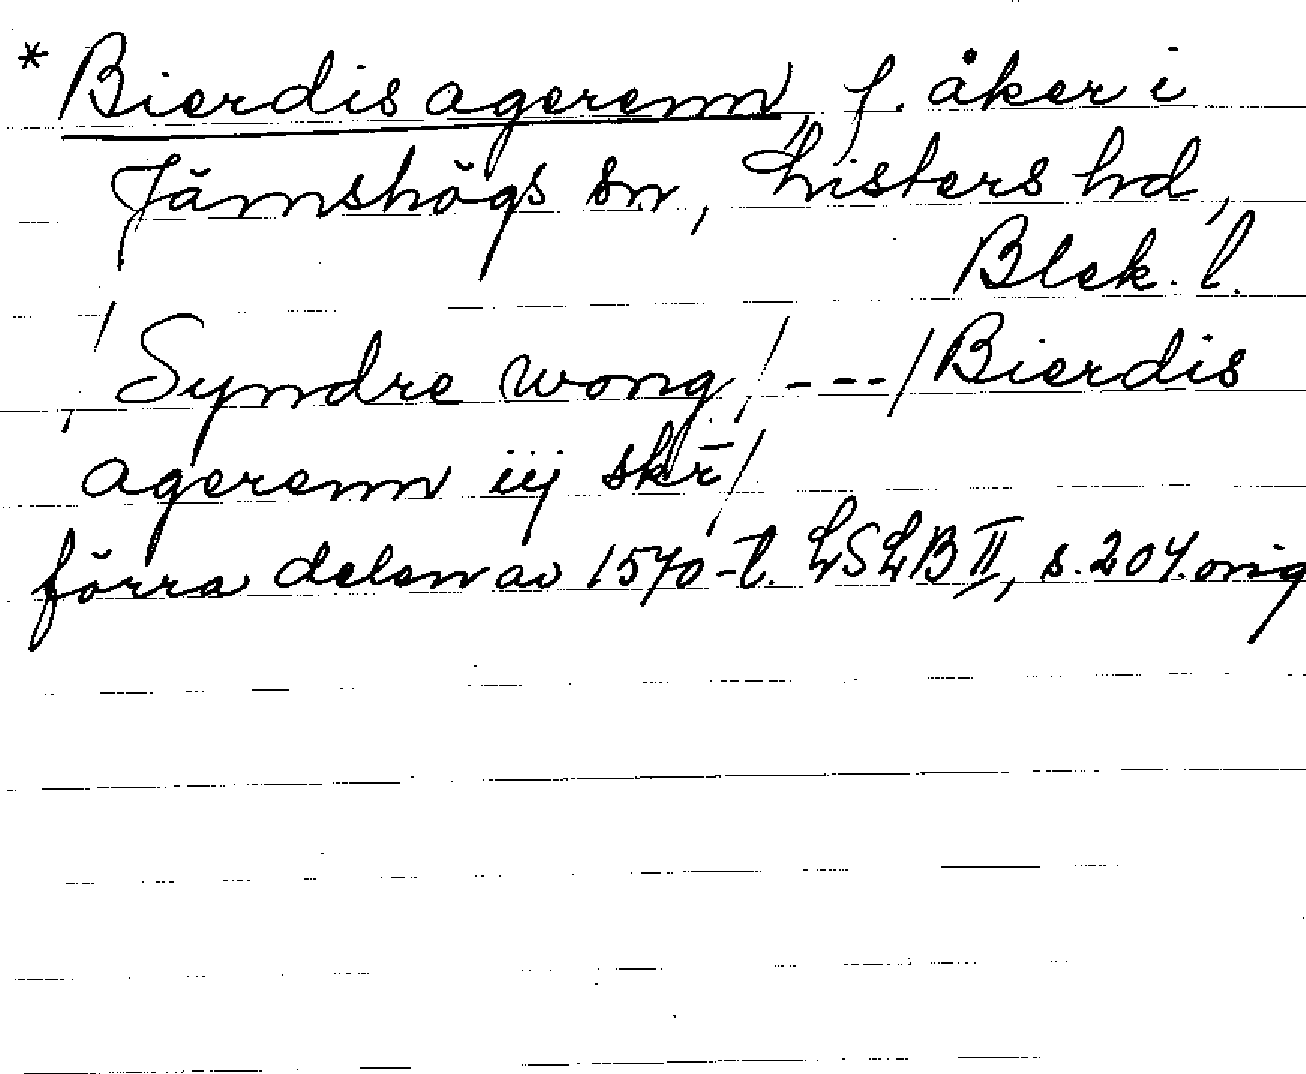 * Bierdis agerenn, f. åker i
Jämshögs sn, Listers hd,
Blek. l.
/ Syndre wong / --- / Bierdis
agerenn iij skr̄ /
förra delen av 1570-t. LSLB II, s. 204. orig